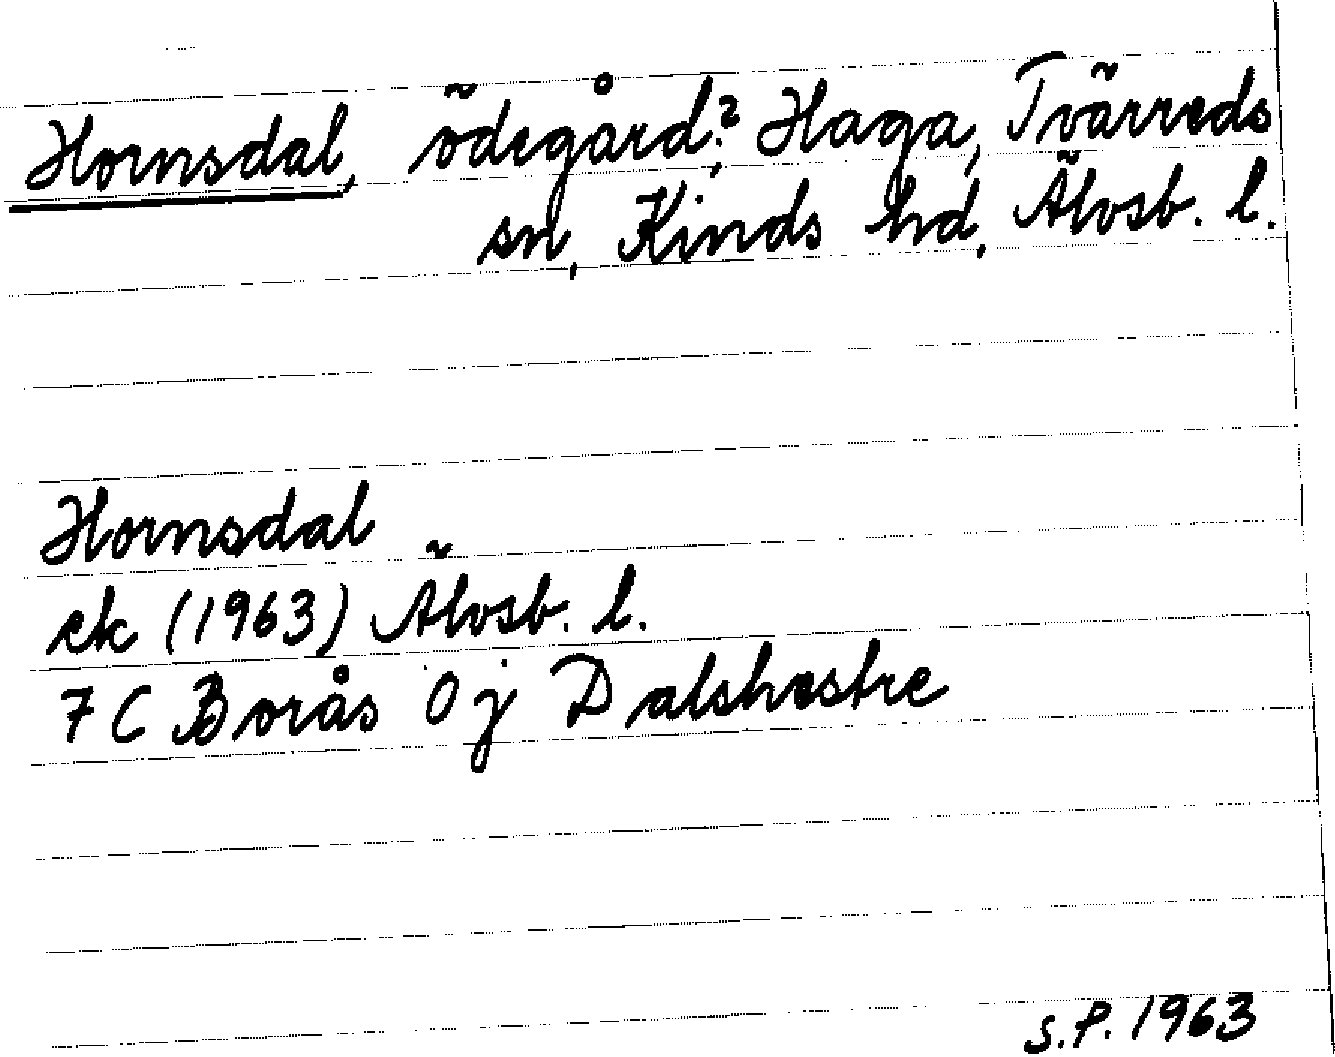 Hornsdal, ödegård?, Haga, Tvärreds
sn, Kinds hd, Älvsb. l.
Hornsdal
ek (1963) Älvsb. l.
7 C Borås 0 j Dalshestre
S.P. 1963